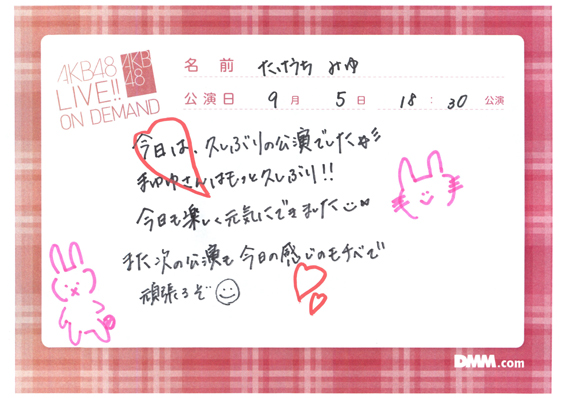 AKB48
LIVE!!
ON DEMAND
AKB
48
名前 たけうち みゆ
公演日 9月 5日 18:30 公演
今日は、久しぶりの公演でした
まゆゆさんはもっと久しぶり!!
今日も楽しく元気にできました
また次の公演も今日の感じのモチベで
頑張るぞ
DMM.com